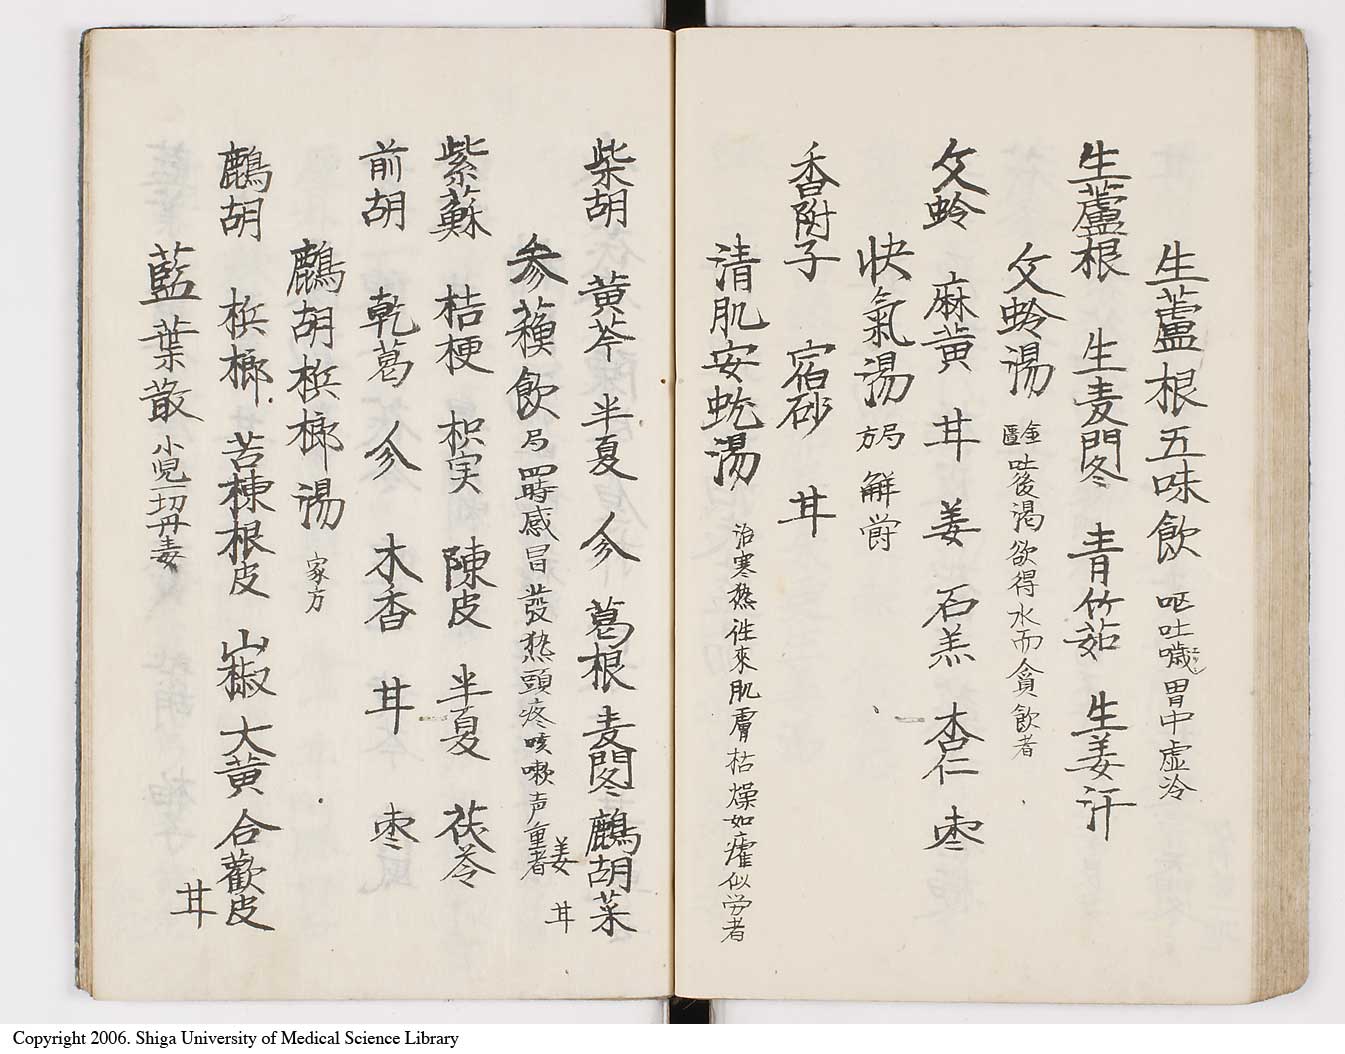 生蘆根五味飲 呕吐噦胃中虚冷
生蘆根 生麦門冬 青竹茹 生姜汁
文蛤湯 金匱 吐後渇欲得水而貪飲者
文蛤 麻黄 甘 姜 石羔 杏仁 枣
快氣湯 局方 解欝
香附子 宿砂 甘
清肌安蛇湯 治寒热徃來肌膚枯燥如瘧似労者
柴胡 黄芩 半夏 参 葛根 麦門冬 鷓胡菜 姜 甘
参蘓飲 局 四時感冒發热頭疼咳嗽声重者
紫蘇 桔梗 枳実 陳皮 半夏 茯苓
前胡 乾葛 参 木香 甘 枣
鷓胡梹榔湯 家方
鷓胡 梹榔 苦棟根皮 山椒 大黄 合歡皮 甘
藍葉散 小児一切丹毒
Copyright 2006. Shiga University of Medical Science Library